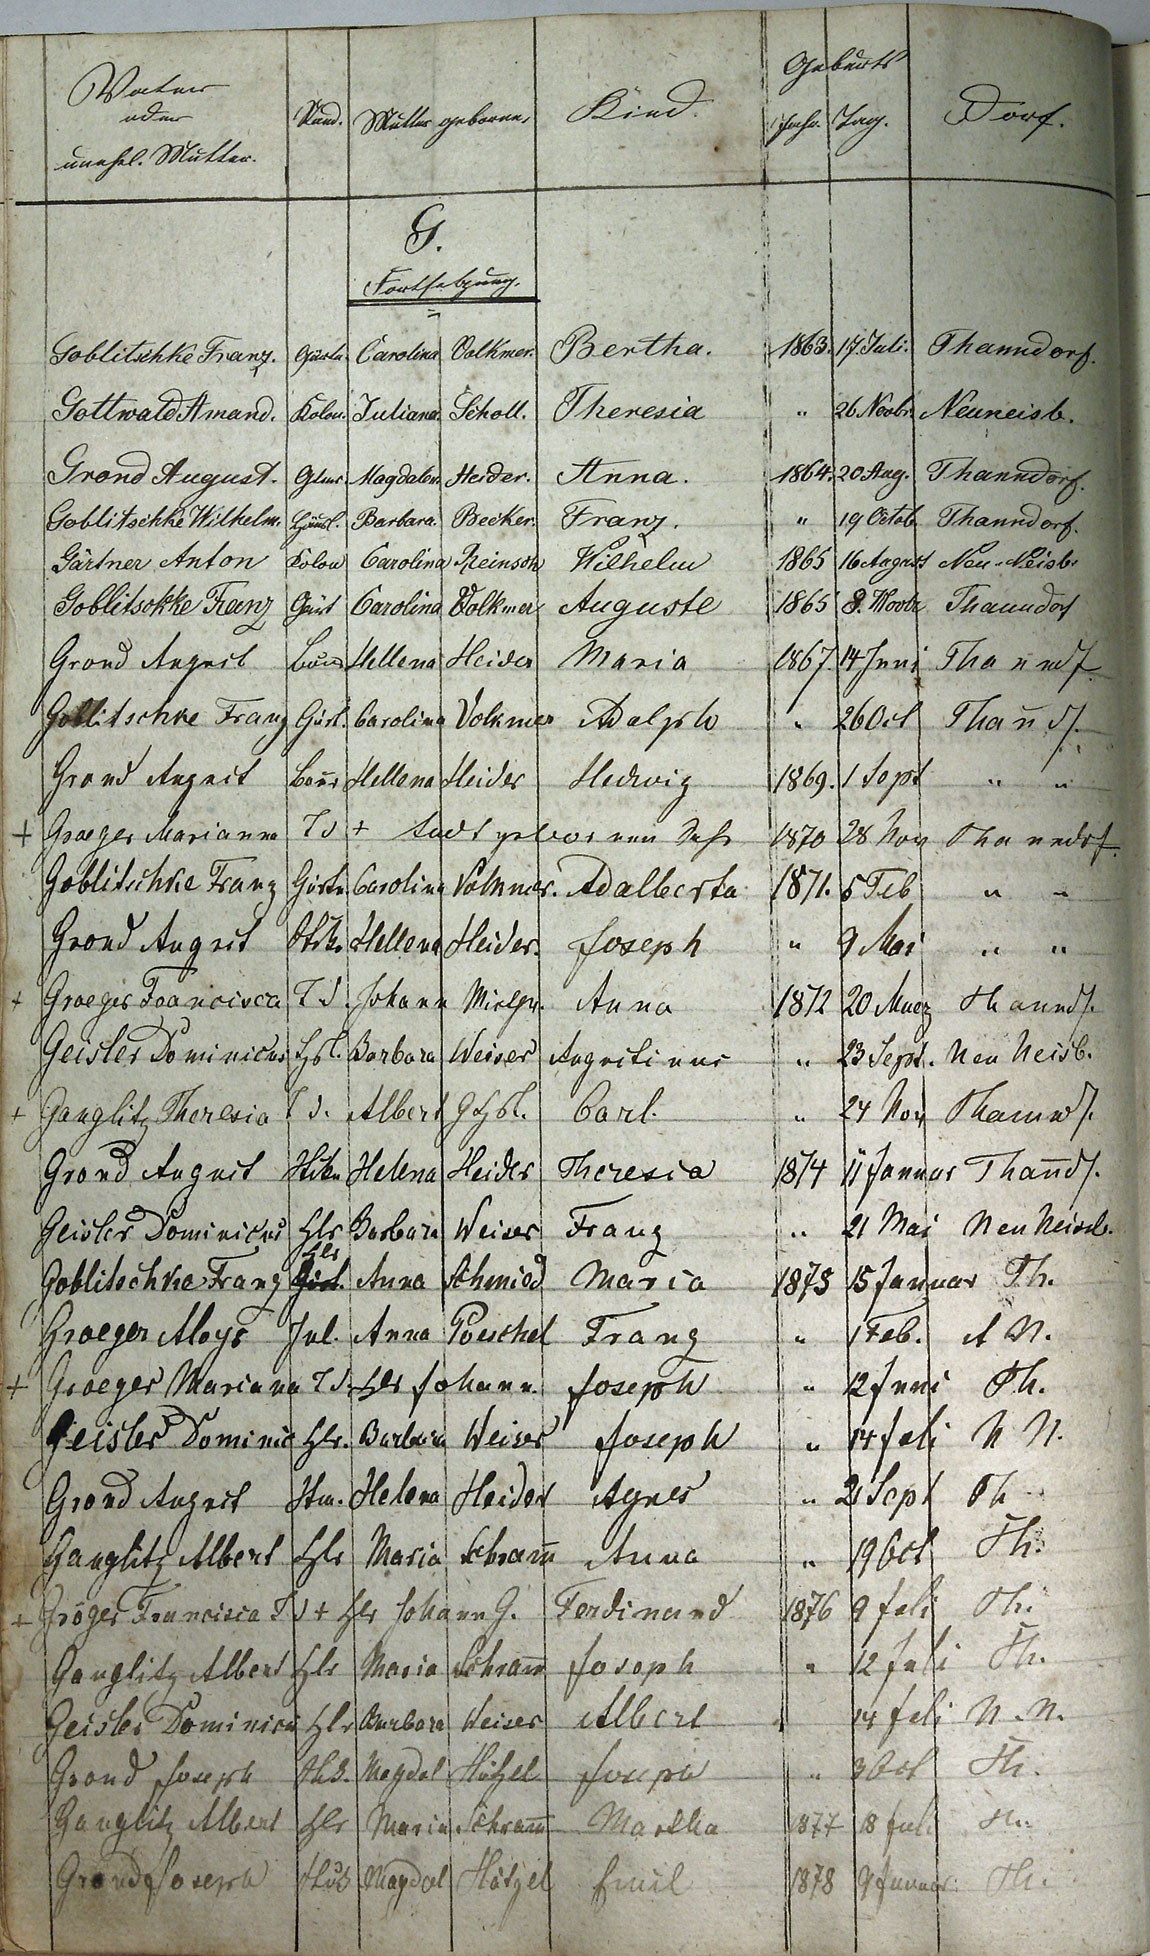 Vater oder unehel. Mutter. Stand. Mutter geborene, Kind. Geburts Jahr. Tag. Dorf.
G.
Fortsetzung.
Goblitschke Franz. Gärtn. Carolina Volkmer. Bertha. 1863. 17. Juli. Thanndorf.
Gottwald Amand. Kolon. Juliana. Scholl. Theresia " 26 Novbr. Neuneisb.
Grond August. Magdalen. Heider. Anna. 1864. 20 Aug. Thanndorf.
Goblitschke Wilhelm. Häusl. Barbara. Becker. Franz. " 19 Octob. Thanndorf.
Gärtner Anton Kolon Carolina Reinsch Wilhelm 1865 16 August Neu-Neisb.
Goblitschke Franz Gärt Carolina Volkmer Auguste 1865 8. Novbr Thanndorf
Grond August Bau Hellena Heider Maria 1867. 14 Juni Thanndf.
Goblitschke Franz Gärt. Carolina Volkmer Adolph " 26 Oct Than̄df.
Grond August Bau Hellena Heider Hedwig 1869. 1 Sept " "
+ Graeger Marianna + todt geboren 1870 28 Nov Thanndrf.
Goblitschke Franz Gärtn. Carolina Volkmer. Adalberta 1871. 5 Feb " "
Grond August Hellena Heider. Joseph " 9 Mai " "
+ Graeger Francisca Johann Anna 1872 20 Maerz Thanndf.
Geisler Dominicus Barbara Weiser " 23 Sept. Neu Neisb.
+ Ganglitz Theresia Albert Carl. " 24 Nov Thanndf.
Grond August Helena Heider Theresia 1874 11 Januar Than̄df.
Geisler Dominicus Hlr Barbara Weiser Franz " 21 Mai Neu Neissb.
Goblitschke Franz Hlr Anna Schmied Maria 1875 15 Januar Th.
Graeger Aloys Anna Poeschel Franz " 1 Feb. N.
+ Graeger Mariana Hlr Johann. Joseph " 12 Juni Th.
Geisler Dominic Hlr. Barbara Weiser Joseph " 14 Juli N N.
Grond August Helena Heider Agnes " 21 Sept Th
Ganglitz Albert Hlr Maria Schram̄ Anna " 19 Oct Th.
+ Gröger Francisca + Hlr Johann G. Ferdinand 1876 9 Juli Th.
Ganglitz Albert Hlr Maria Schram̄ Joseph " 12 Juli Th.
Geisler Dominicus Hlr Barbara Weiser Albert " 14 Juli N. N.
Grond Joseph Magdal Hötzel Joseph " 3 Oct Th.
Ganglitz Albert Hlr Maria Schram̄ Martha 1877 18 Juli Th.
Grond Joseph Magdal Hötzel Emil 1878 9 Januar Th.